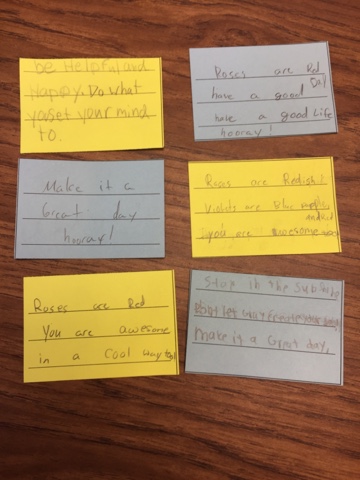 be Helpful and
Happy. Do what
yaset your mind
to.
Roses are Red
have a good Day
have a good Life
hooray!
Make it a
Great day
hooray!
Roses are Redish!
Violets are Blue
you are awesome
Roses are Red
You are awesome
in a cool way
Stay in the
make it a Great day,